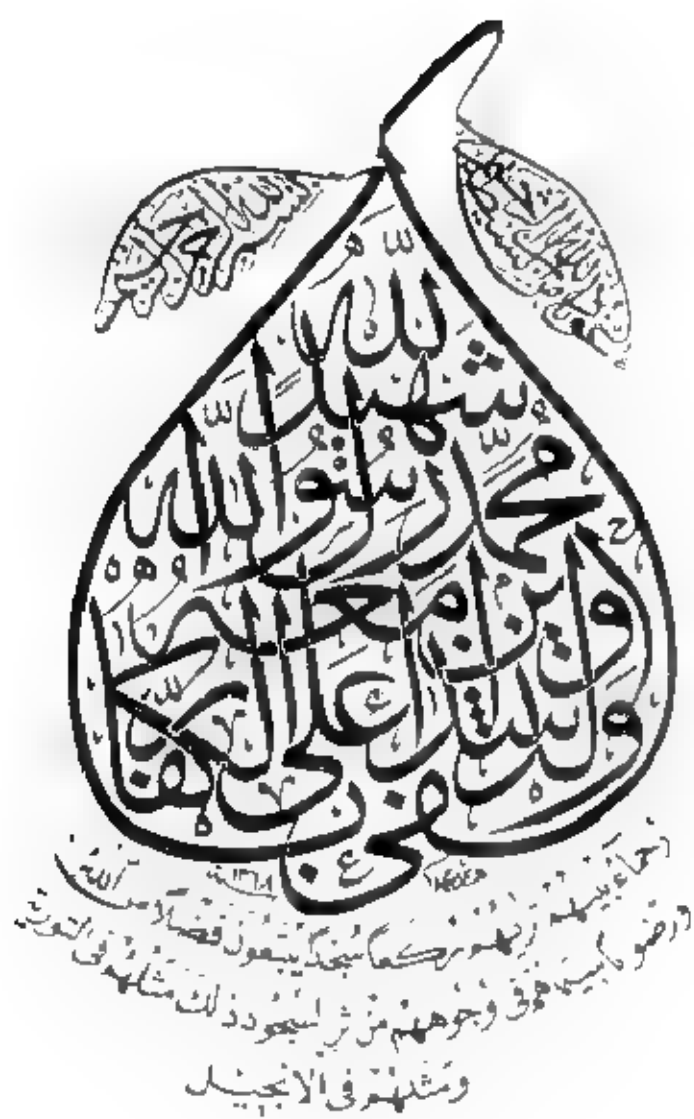 بسم الله الرحمن الرحيم
وكفى بالله شهيدا
محمد رسول الله
والذين معه
أشداء على الكفار
١٣٦٨
رحماء بينهم تريهم ركعا سجدا يبتغون فضلا من الله
ورضوانا سيماهم فى وجوههم من اثر السجود ذلك مثلهم فى التورية
ومثلهم فى الانجيل